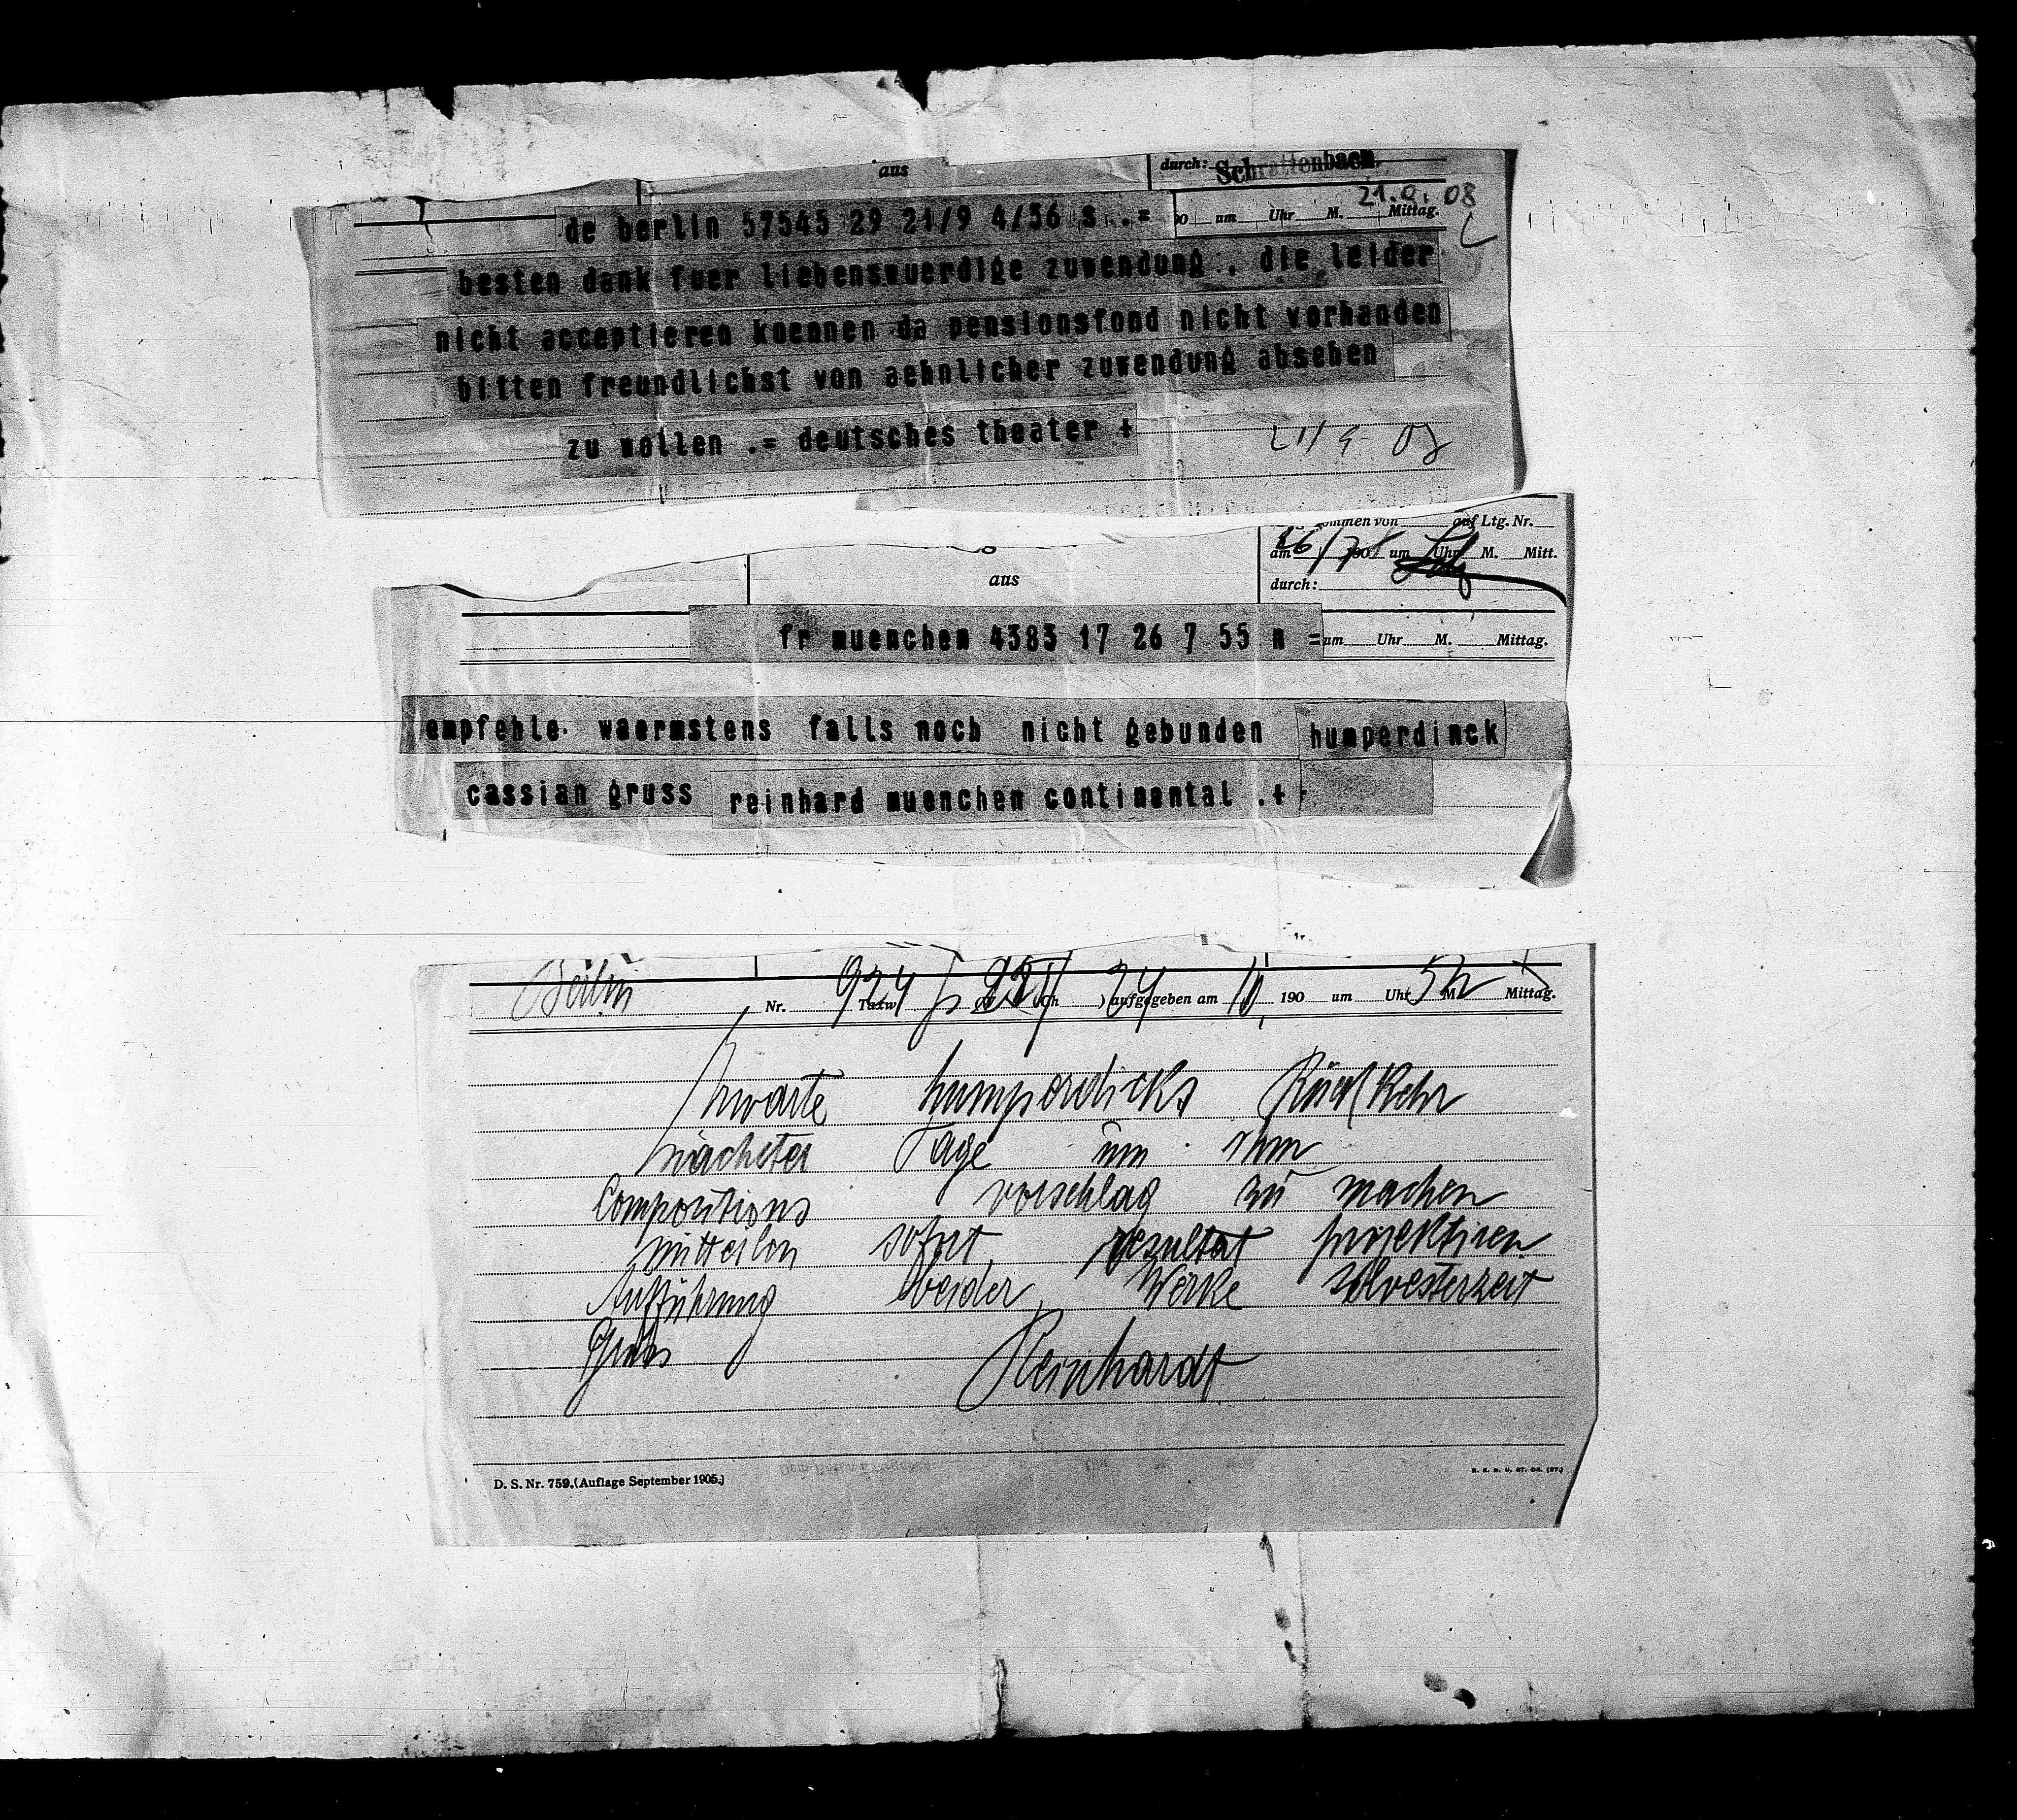 aus
durch: Schrattenbach.
21.9.08
de berlin 57545 29 21/9 4/36 s .=
um Uhr M. Mittag.
besten dank fuer liebenswuerdige zuwendung . die leider
nicht acceptieren koennen da pensionsfond nicht vorhanden
bitten freundlichst von aehnlicher zuwendung absehen
zu wollen .= deutsches theater +
21/9 08
ommen von auf Ltg. Nr.
am 26/7 190 8 um Uhr M. Mitt.
aus
durch:
fr muenchen 4383 17 26 7 55 n =
um Uhr M. Mittag.
empfehle waermstens falls noch nicht gebunden humperdinck
cassian gruss reinhard muenchen continental .+
Berlin Nr. 924 Taxw ) aufgegeben am 24/10 190 um Uhr 5 M Mittag.
Erwarte humperdicks Rückkehr
nächster Tage um ihm
Compositions vorschlag zu machen
mitteilen sofort resultat projektiren
Aufführung beider Werke Sylvesterzeit
Gruss Reinhardt
D. S. Nr. 759. (Auflage September 1905.)